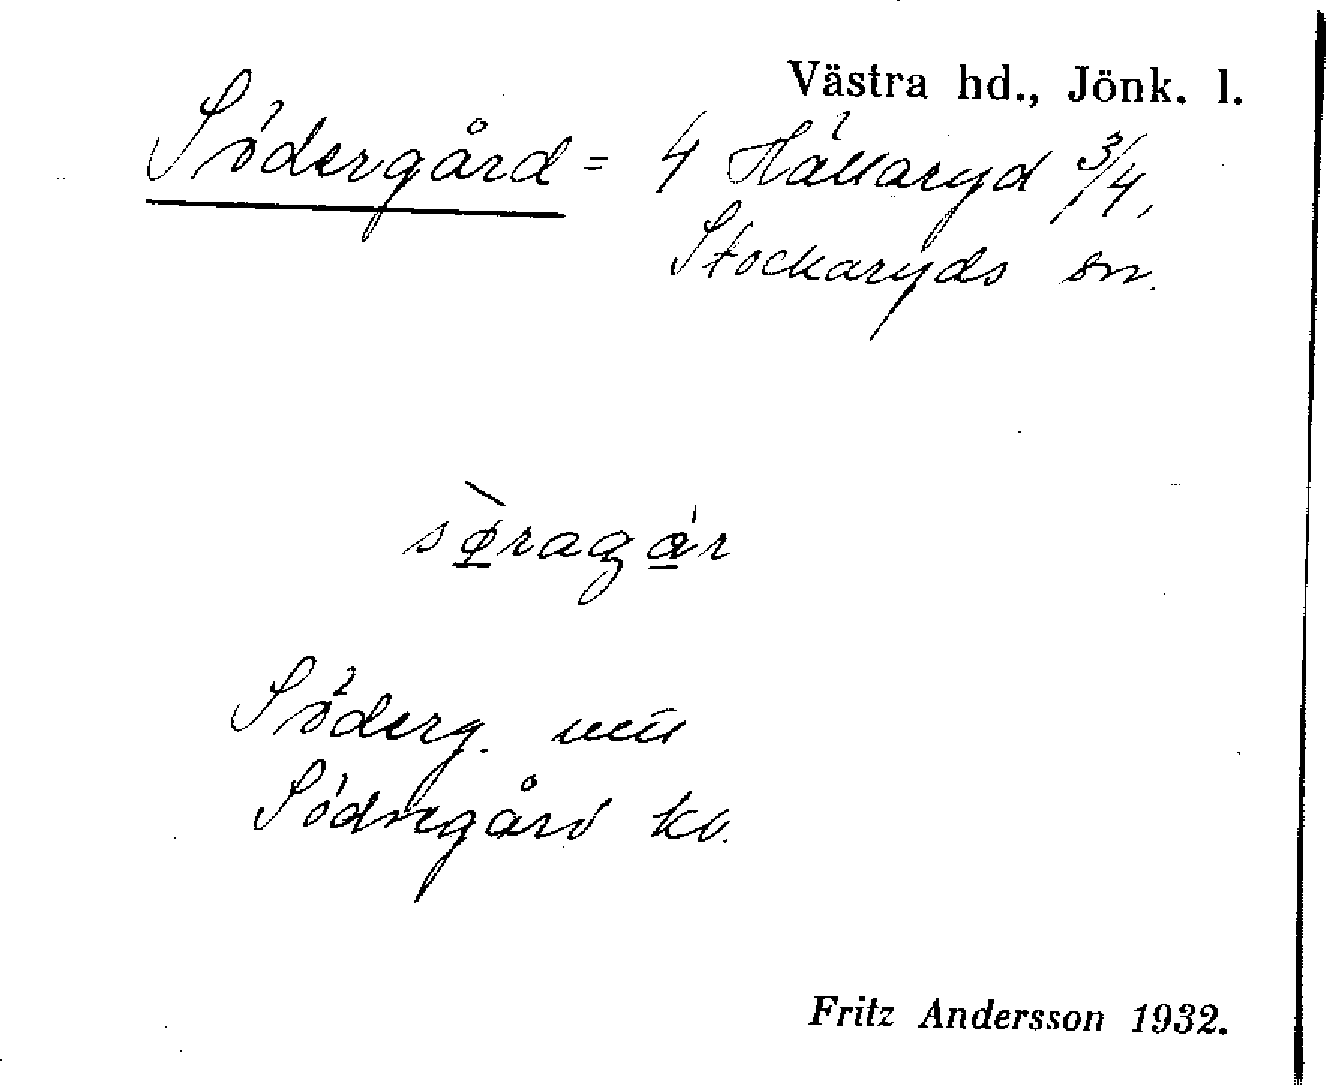 Västra hd., Jönk. l.
Södergård = 4 Hällaryd 3/4,
Stockaryds sn.
sø̱̀raga̱r
Söderg.
Södregård ko.
Fritz Andersson 1932.